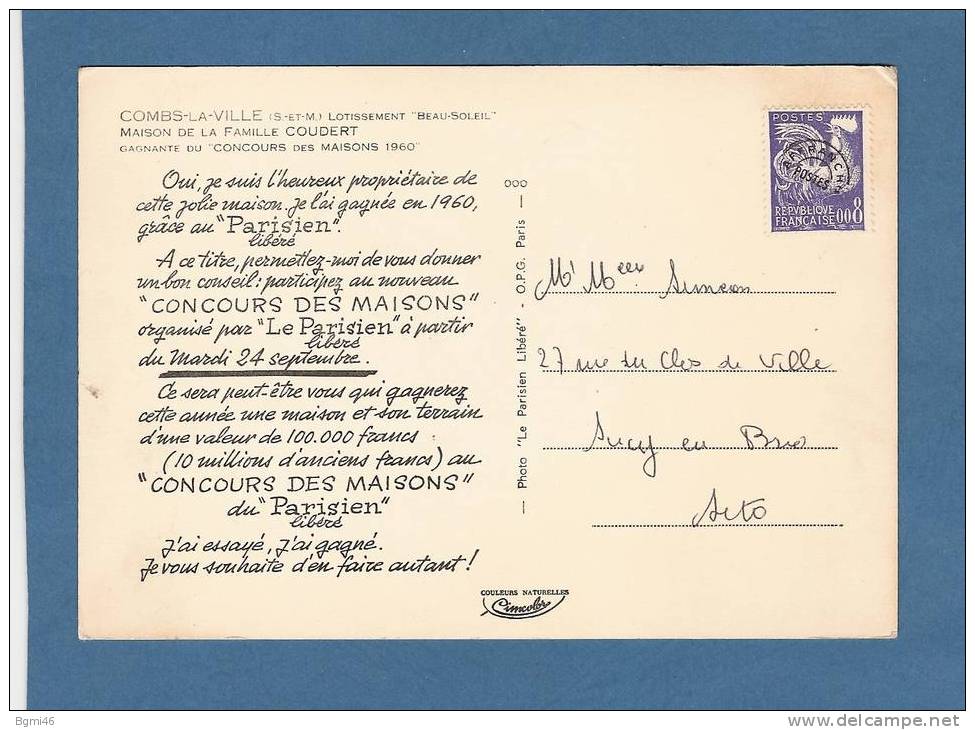 COMBS-LA-VILLE (S.-ET-M.) LOTISSEMENT "BEAU-SOLEIL"
MAISON DE LA FAMILLE COUDERT
GAGNANTE DU "CONCOURS DES MAISONS 1960"
Oui, je suis l'heureux propriétaire de
cette jolie maison. Je l'ai gagnée en 1960,
grâce au "Parisien".
libéré
A ce titre, permettez-moi de vous donner
un bon conseil : participez au nouveau
"CONCOURS DES MAISONS"
organisé par "Le Parisien" à partir
libéré
du Mardi 24 septembre.
Ce sera peut-être vous qui gagnerez
cette année une maison et son terrain
d'une valeur de 100.000 francs
(10 millions d'anciens francs) au
"CONCOURS DES MAISONS"
du "Parisien"
libéré
J'ai essayé, J'ai gagné.
Je vous souhaite d'en faire autant !
— Photo "Le Parisien Libéré" - O.P.G. Paris — 000
COULEURS NATURELLES
Cimcolor
POSTES
AFFRANCHts
POSTES
REPVBLIQUE
FRANÇAISE 0,08
27 rue du Clos de Ville
Sucy en Brie
Bgmi46
www.delcampe.net